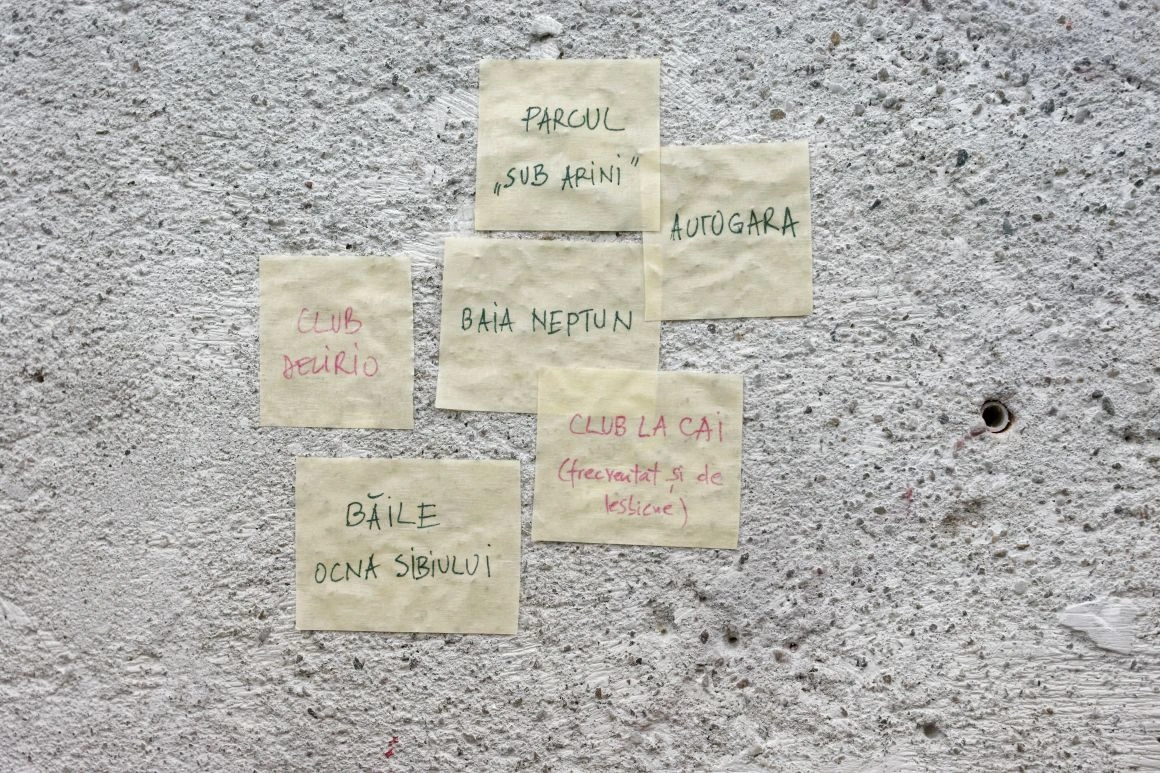 PARCUL
„SUB ARINI”
AUTOGARA
CLUB
DELIRIO
BAIA NEPTUN
CLUB LA CAI
(frecventat și de
lesbiene)
BĂILE
OCNA SIBIULUI